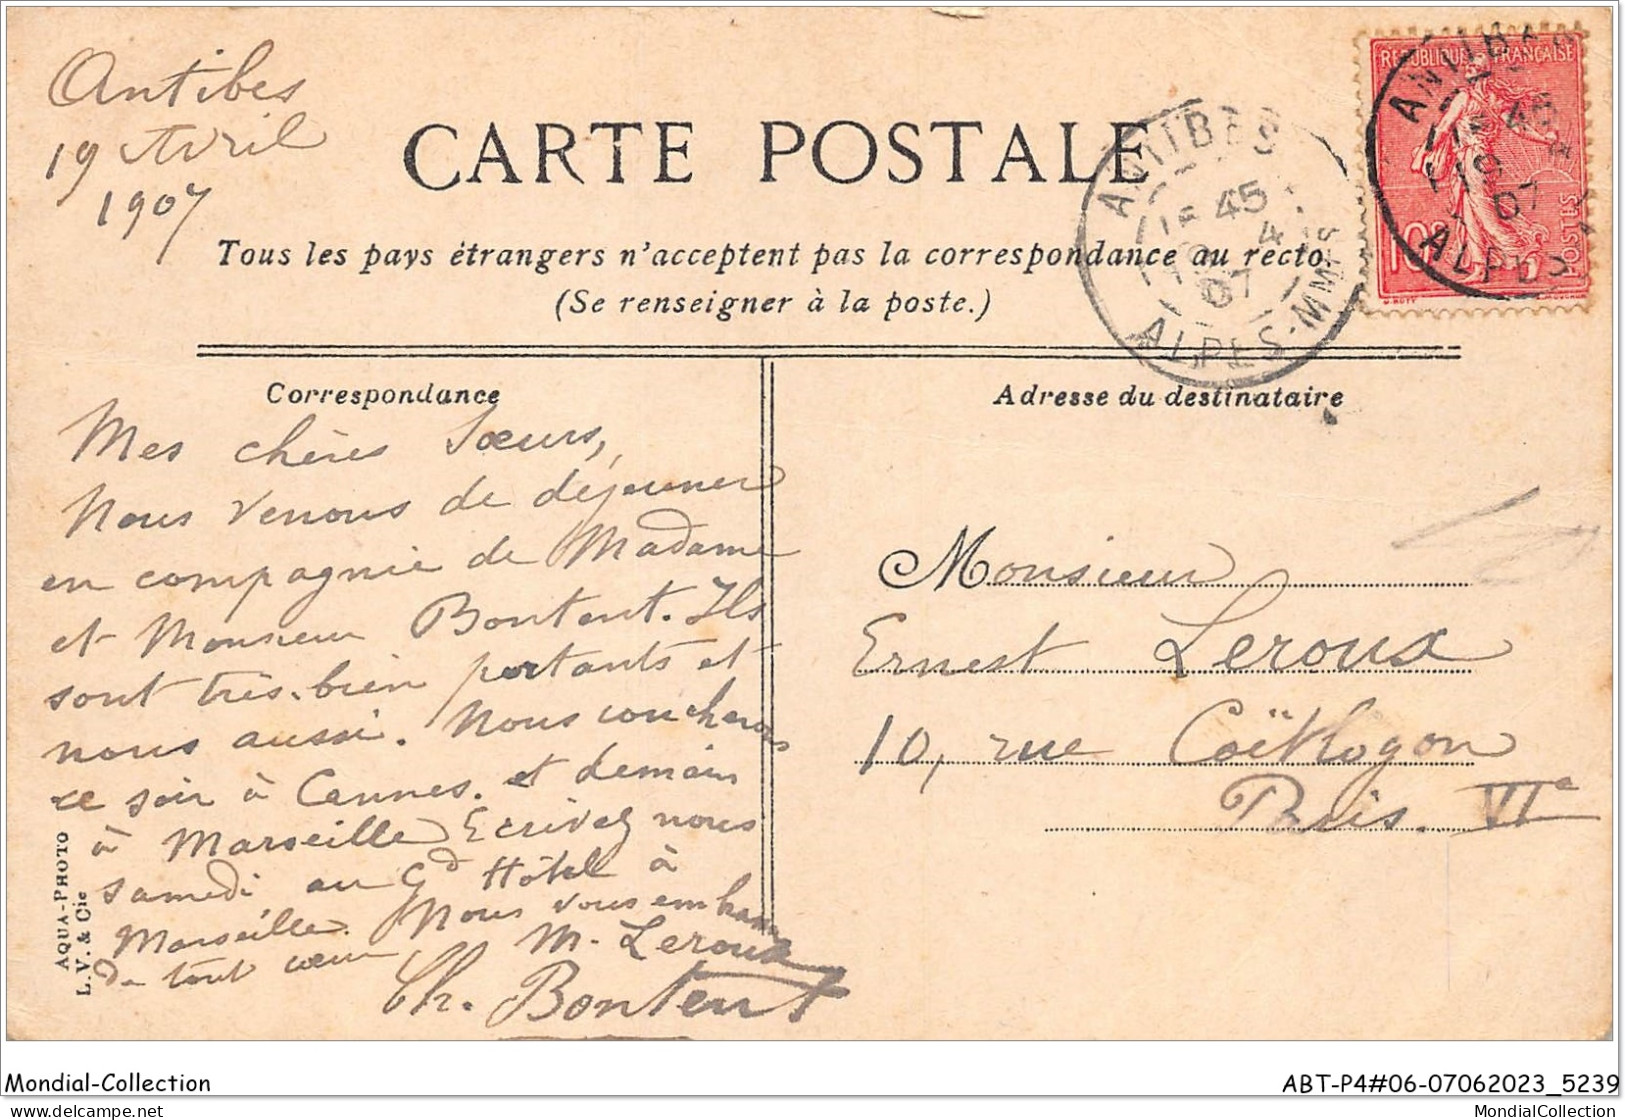 Antibes
19 Avril
1907
CARTE POSTALE
Tous les pays étrangers n'acceptent pas la correspondance au recto.
(Se renseigner à la poste.)
ANTIBES
45
4
07
ALPES-MMES
REPUBLIQUE FRANÇAISE
10
POSTES
ANTIBES
45
07
ALPES
Correspondance
Mes chères Sœurs,
Nous venons de déjeuner
en compagnie de Madame
et Monsieur Bontent. Ils
sont très-bien portants et
nous aussi. Nous coucherons
ce soir à Cannes. et demain
à Marseille Ecrivez nous
samedi au Gd Hôtel à
Marseille. Nous vous embras
de tout cœur
M. Leroux
Ch. Bontent
AQUA-PHOTO
L.V. & Cie
Adresse du destinataire
Monsieur
Ernest Leroux
10, rue Coëtlogon
Paris. VIe
Mondial-Collection
ABT-P4#06-07062023_5239
MondialCollection
delcampe.net